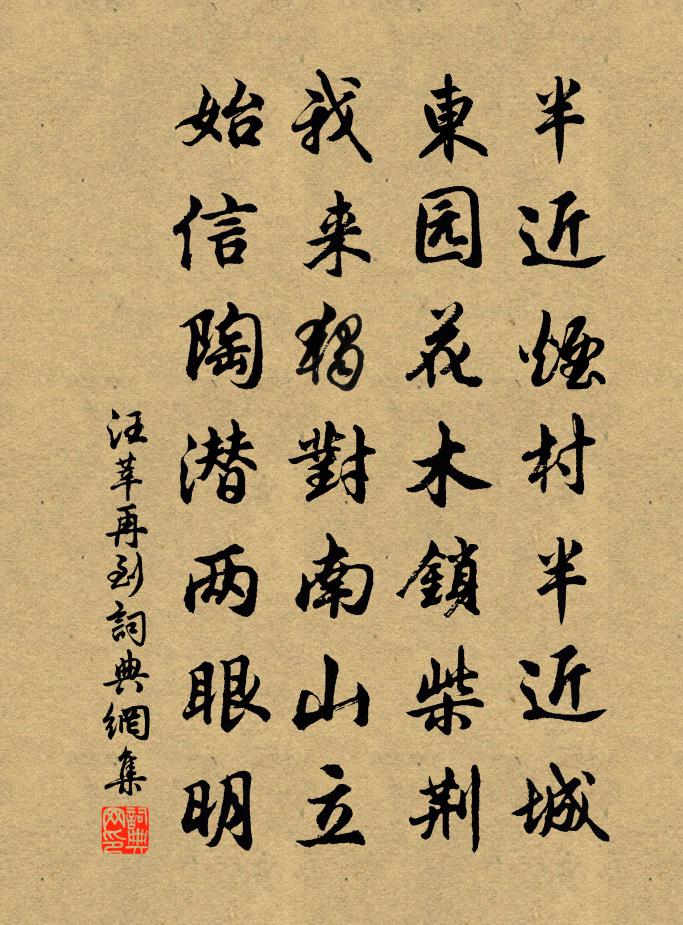 半近煙村半近城
東园花木鎖柴荆
我来獨對南山立
始信陶潜两眼明
汪莘再到詞典網集
詞典網印